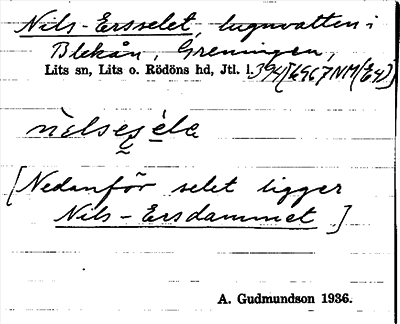 Nils-Ersselet, lugnvatten i
Blekån, Greningen,
Lits sn, Lits o. Rödöns hd, Jtl. l.
nelsesela
[Nedanför selet ligger
Nils-Ersdammet]
A. Gudmundson 1936.